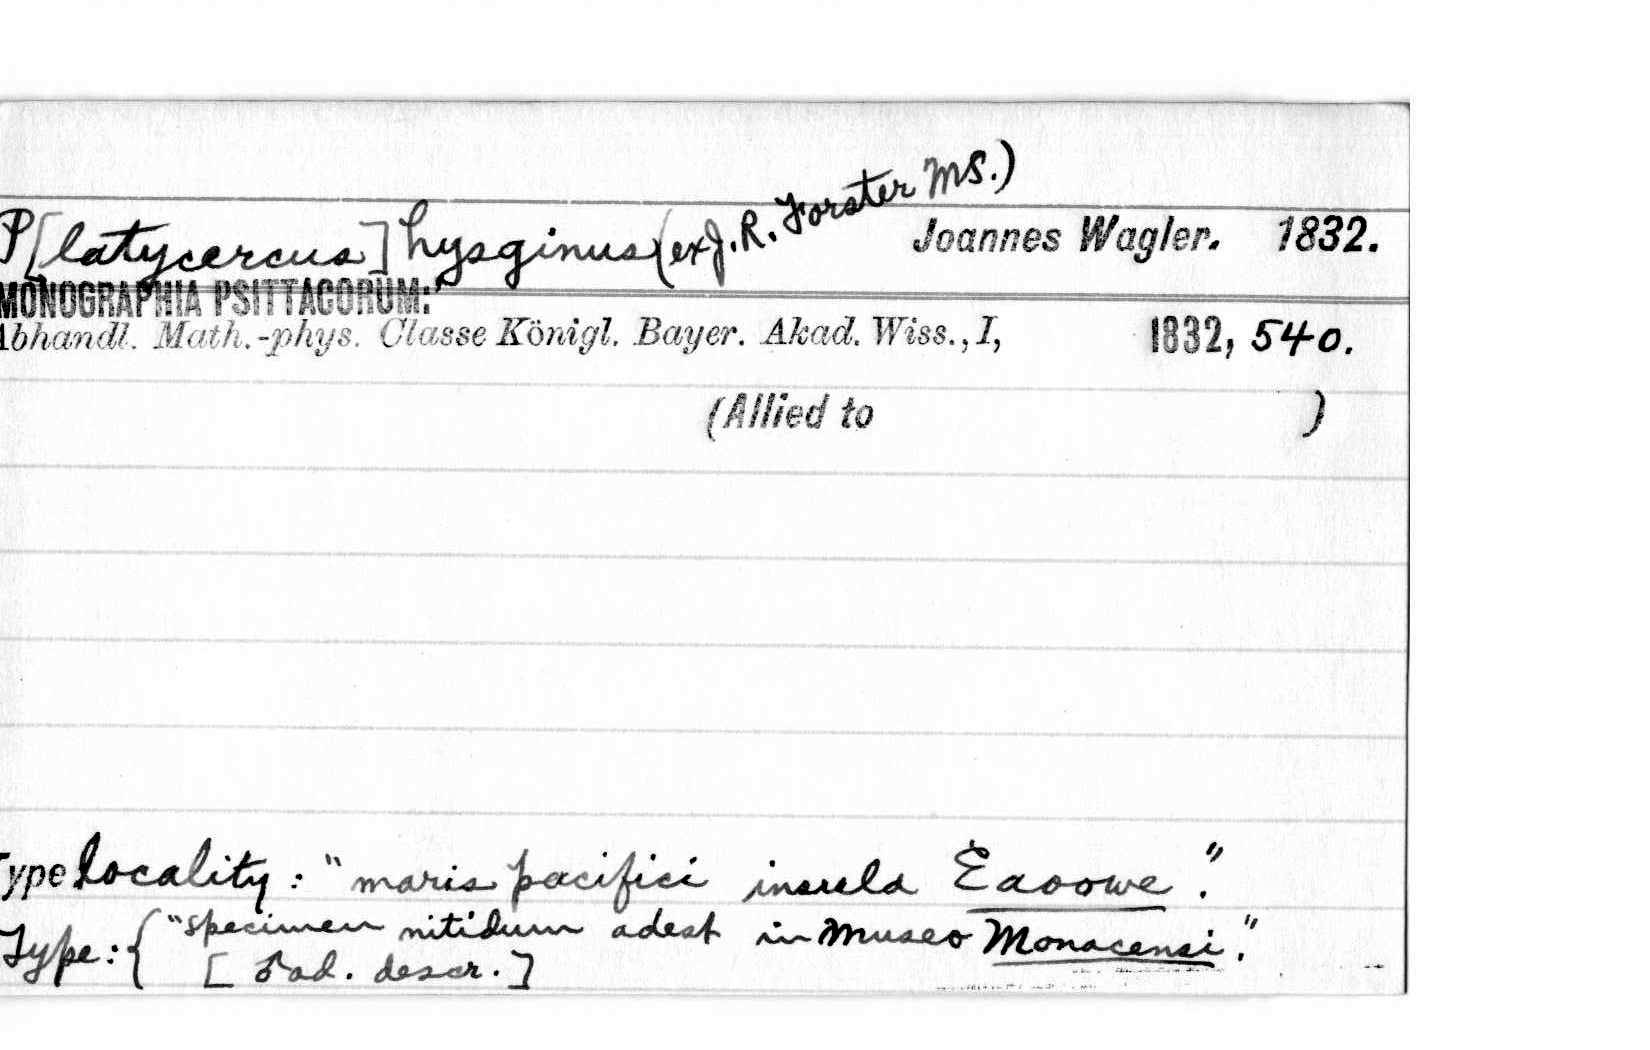 P[latycercus] hysginus (ex J. R. Forster MS.) Joannes Wagler. 1832.
MONOGRAPHIA PSITTACORUM:
Abhandl. Math.-phys. Classe Königl. Bayer. Akad. Wiss., I, 1832, 540.
(Allied to )
Type locality: "maris pacifici insula Eaoowe".
Type: { "specimen nitidum adest in Museo Monacensi".
[ ♂ ad. descr. ]